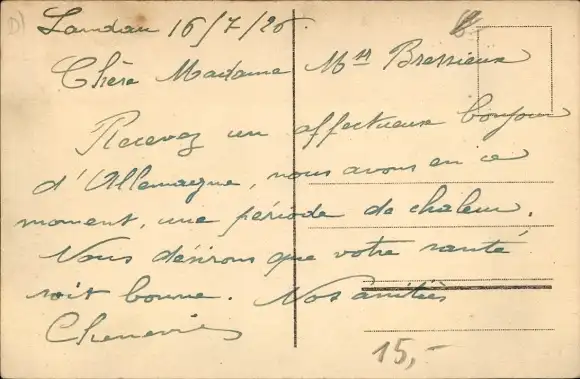 Landau 16/7/26.
Chère Madame Mr Bressieux
Recevez un affectueux bonjour
d'Allemagne, nous avons en ce
moment, une période de chaleur.
Nous désirons que votre santé
soit bonne. Nos amitiés
15,-